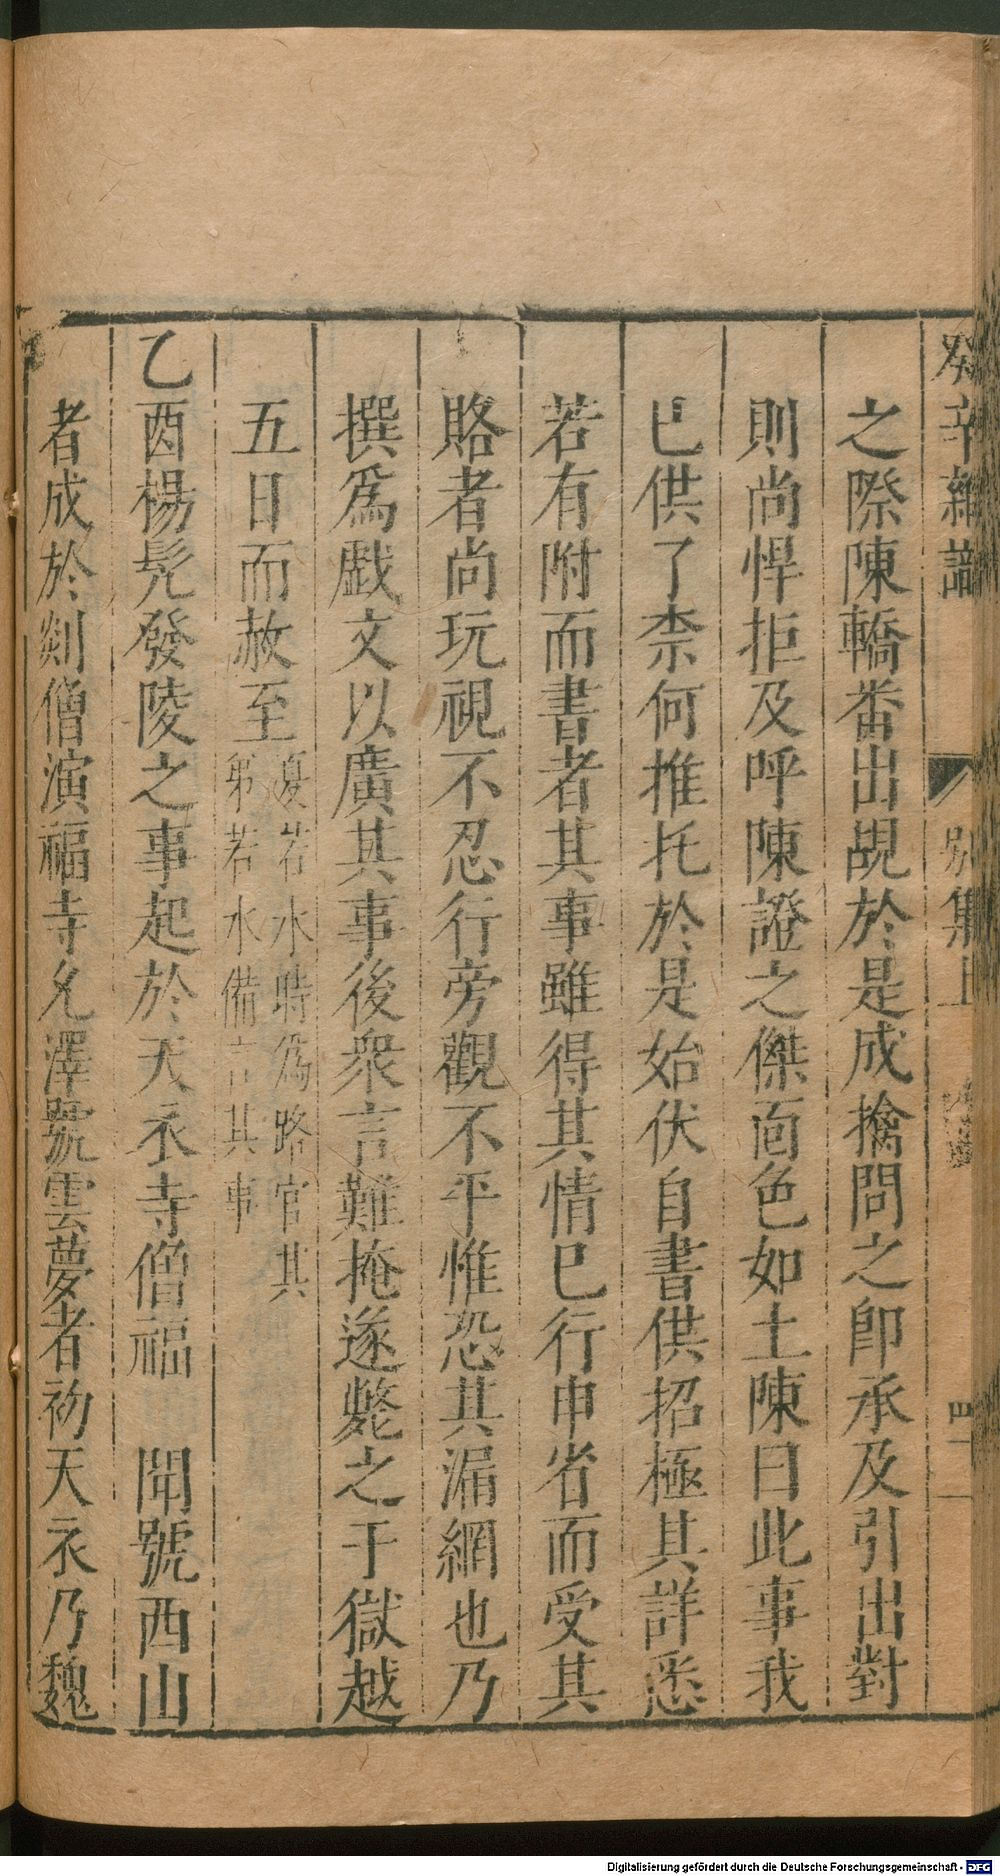 癸辛雜識 別集上
之際陳轎畨出覘於是成擒問之卽承及引出對
則尚悍拒及呼陳證之傑靣色如土陳曰此事我
巳供了柰何推托於是始伏自書供招極其詳悉
若有附而書者其事雖得其情巳行申省而受其
賂者尚玩視不忍行旁觀不平惟恐其漏網也乃
撰爲戲文以廣其事後衆言難掩遂斃之于獄越
五日而赦至夏若水時爲路官其
弟若水備言其事
乙酉楊髡發陵之事起於天衣寺僧福 聞號西山
者成於剡僧演福寺允澤號雲夢者初天衣乃魏
Digitalisierung gefördert durch die Deutsche Forschungsgemeinschaft - DFG